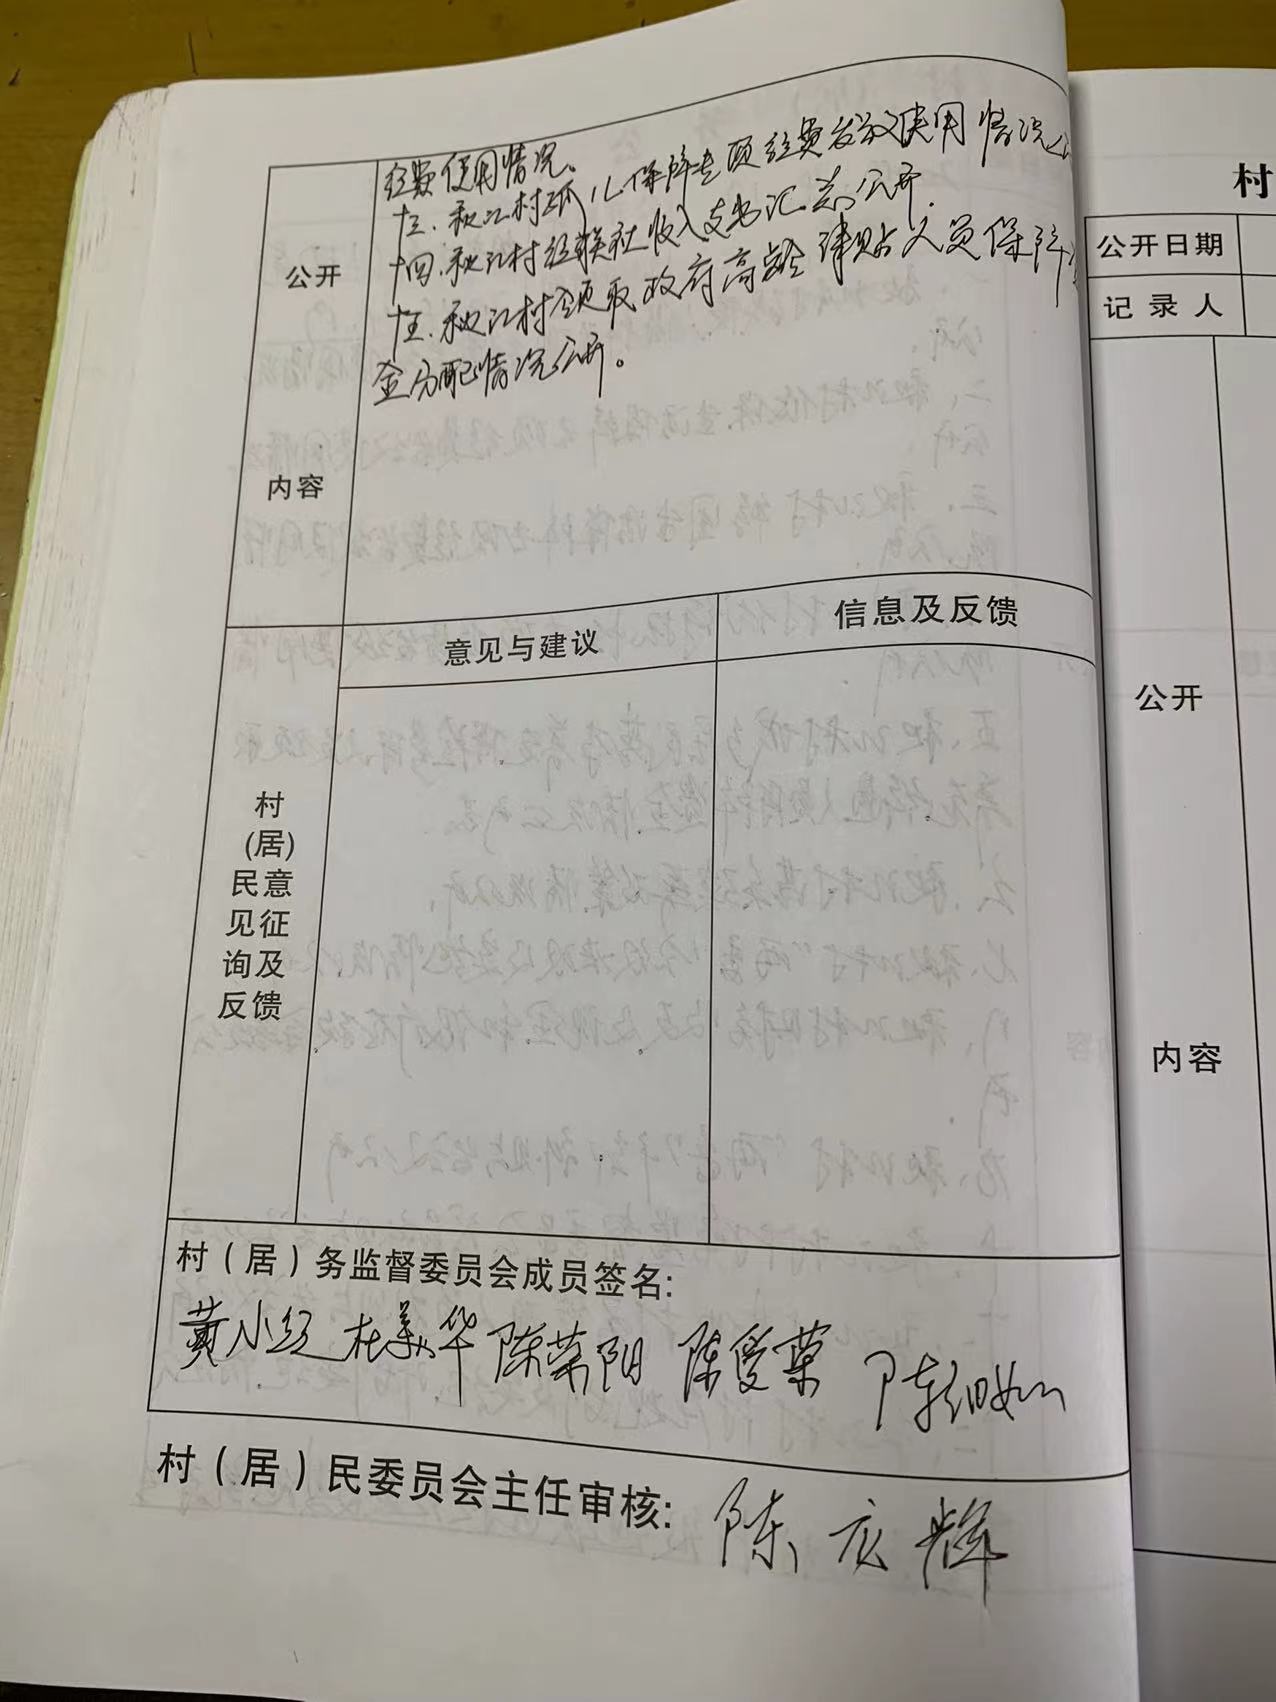 经费使用情况。
十三.秋江村孤儿保障专项经费发放使用情况公
十四.秋江村经联社收入支出汇总公开.
十五.秋江村领取政府高龄津贴人员保障资
金分配情况公开。
公开
内容
意见与建议
信息及反馈
村
(居)
民意
见征
询及
反馈
村（居）务监督委员会成员签名:
黄小红 杜美华 陈荣阳 陈爱葉 陈细如
村（居）民委员会主任审核: 陈庆辉
村
公开日期
记 录 人
公开
内容